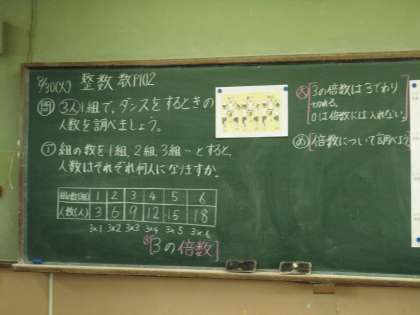 8/30(火) 整数 教P102
問 3人1組で、ダンスをするときの
人数を調べましょう。
① 組の数を1組、2組、3組…とすると、
人数はそれぞれ何人になりますか。
組の数(組) 1 2 3 4 5 6
人数(人) 3 6 9 12 15 18
3×1 3×2 3×3 3×4 3×5 3×6
[3の倍数]
3の倍数は3でわり
切れる。
0は倍数には入れない。
め 倍数について調べよう